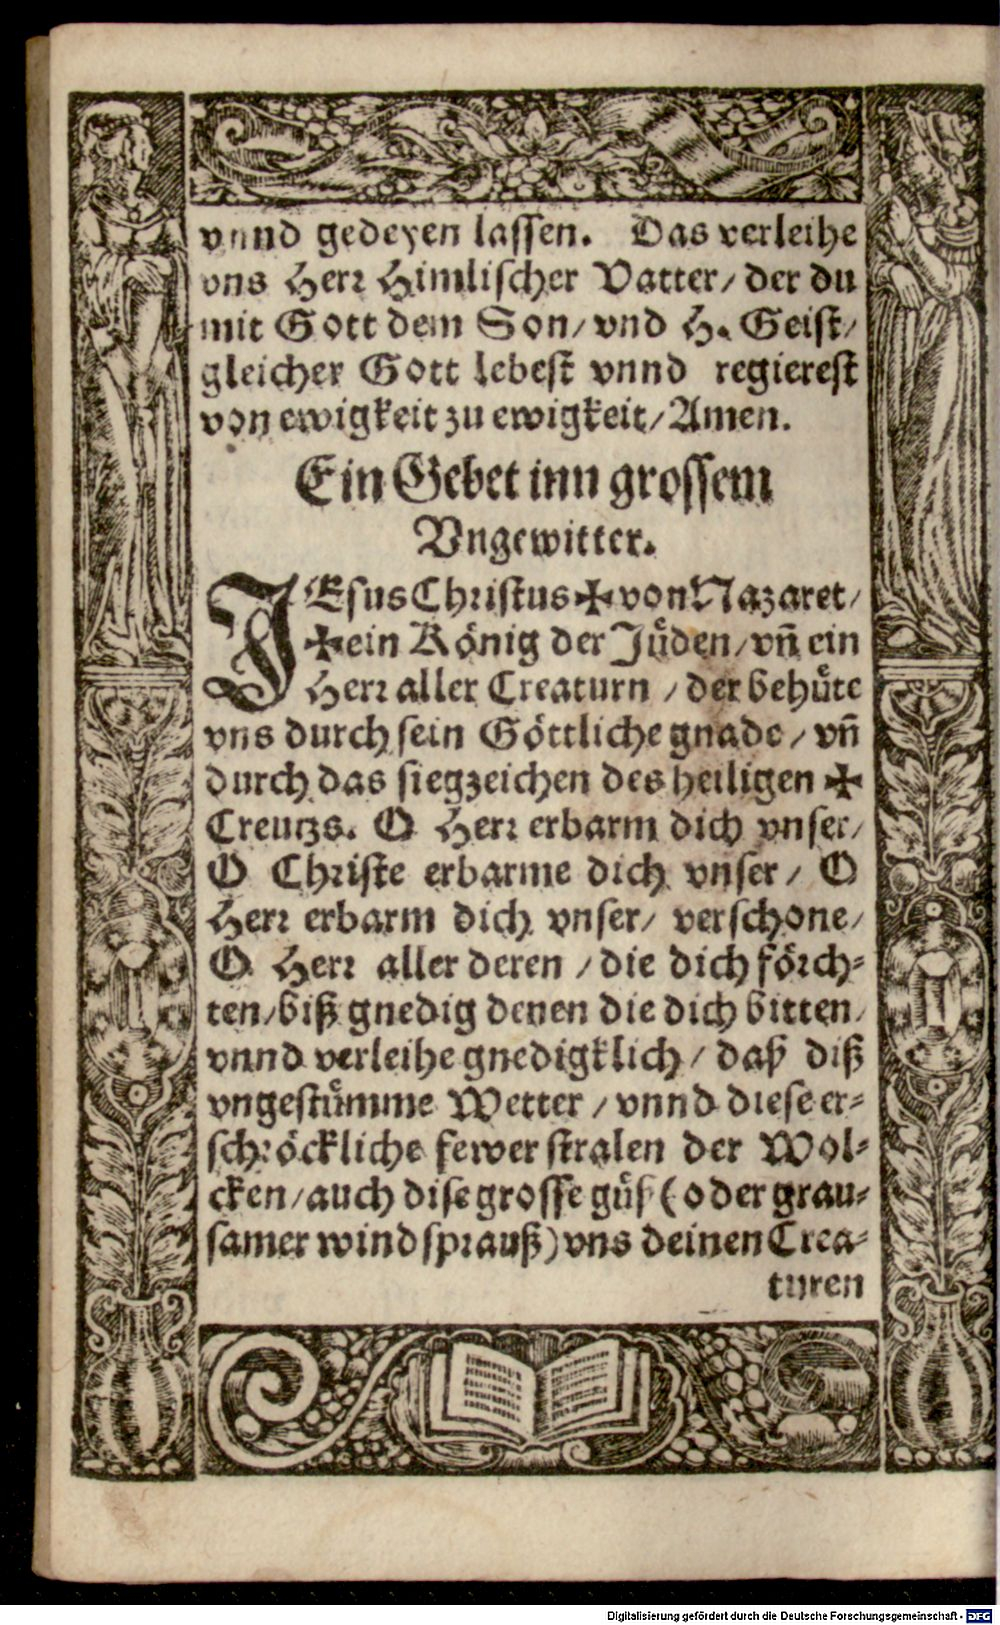 vnnd gedeyen lassen. Das verleihe
vns Herr Himlischer Vatter/ der du
mit Gott dem Son/ vnd H. Geist/
gleicher Gott lebest vnnd regierest
von ewigkeit zu ewigkeit/ Amen.
Ein Gebet inn grossem
Vngewitter.
JEsus Christus ✠ von Nazaret/
✠ ein König der Jüden/ vñ ein
Herr aller Creaturn / der behüte
vns durch sein Göttliche gnade / vñ
durch das siegzeichen des heiligen ✠
Creutzs. O Herr erbarm dich vnser/
O Christe erbarme dich vnser / O
Herr erbarm dich vnser/ verschone/
O Herr aller deren / die dich förch⸗
ten/ biß gnedig denen die dich bitten/
vnnd verleihe gnedigklich / daß diß
vngestümme Wetter / vnnd diese er⸗
schröckliche fewer stralen der Wol⸗
cken/ auch dise grosse güß (oder grau⸗
samer windsprauß) vns deinen Crea⸗
turen
Digitalisierung gefördert durch die Deutsche Forschungsgemeinschaft - DFG